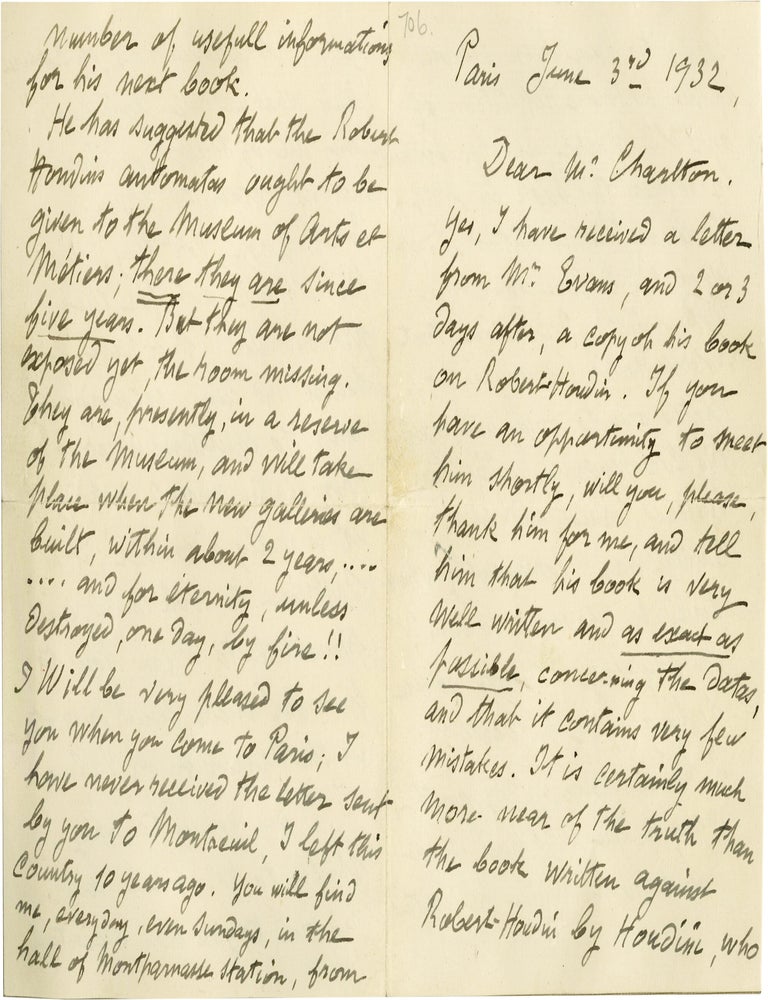 706.
Paris June 3rd 1932,
Dear Mr. Charlton.
Yes, I have received a letter
from Mr. Evans, and 2 or 3
days after, a copy of his book
on Robert-Houdin. If you
have an opportunity to meet
him shortly, will you, please,
thank him for me, and tell
him that his book is very
well written and as exact as
possible, concerning the datas,
and that it contains very few
mistakes. It is certainly much
more near of the truth than
the book written against
Robert-Houdin by Houdini, who
number of usefull informations
for his next book.
He has suggested that the Robert
Houdin automatas ought to be
given to the Museum of Arts et
Métiers; there they are since
five years. But they are not
exposed yet, the room missing.
They are, presently, in a reserve
of the Museum, and will take
place when the new galleries are
built, within about 2 years,....
.... and for éternity, unless
destroyed, one day, by fire!!
I will be very pleased to see
you when you come to Paris; I
have never received the letter sent
by you to Montreuil, I left this
country 10 years ago. You will find
me, everyday, even Sundays, in the
hall of Montparnasse station, from